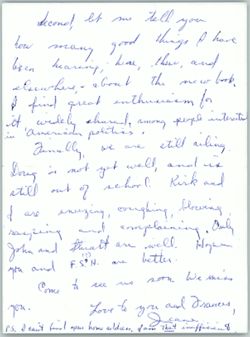 Second, let me tell you
how many good things I have
been hearing, here, there, and
elsewhere - about the new book.
I find great enthusiasm for
it widely shared, among people interested
in American politics.
Finally, we are still ailing.
Doug is not yet well, and is
still out of school. Kirk and
I are sneezing, coughing, blowing
and complaining. Only
John and Stuart are well. Hope
you and F.S.H. are better.
Come to see us soon. We miss
you.
Love to you and Frances,
Jeane
P.S. I can't find your home address, & am that inefficient